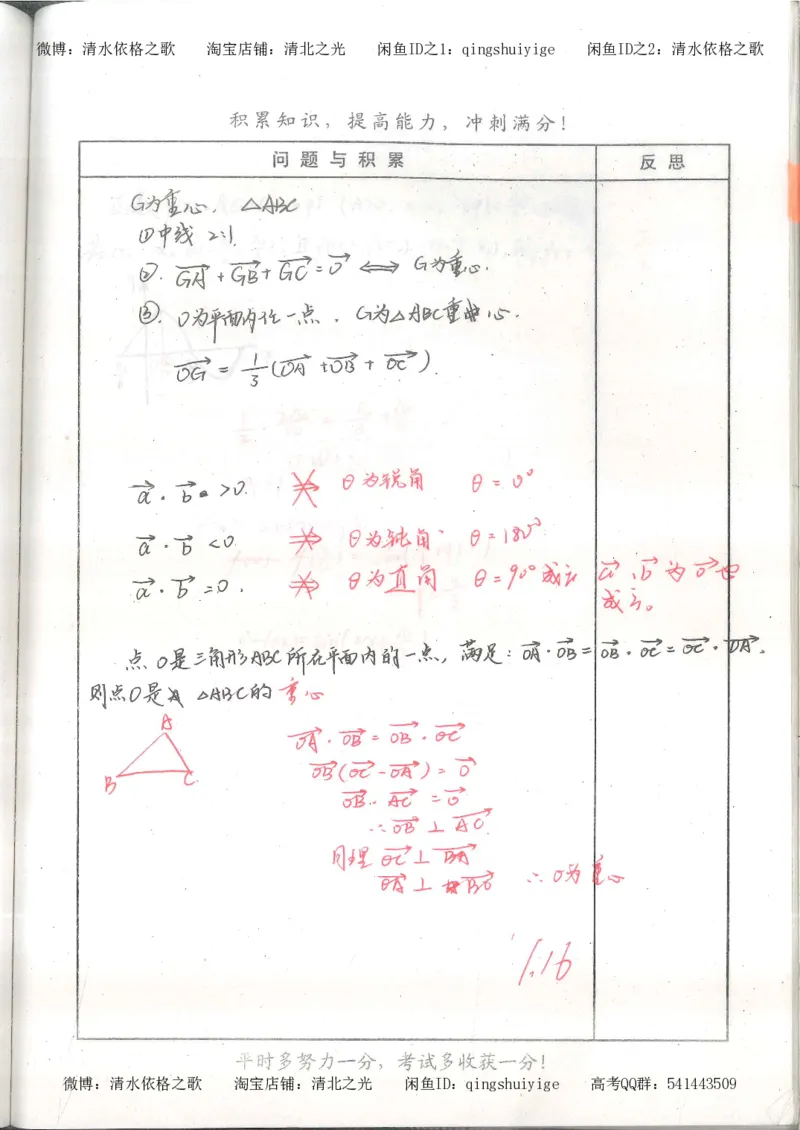 微博：清水依格之歌 淘宝店铺：清北之光 闲鱼ID之1：qingshuiyige 闲鱼ID之2：清水依格之歌
积累知识，提高能力，冲刺满分！
问题与积累 反思
G为重心. △ABC
①中线 2:1.
②. GA→ + GB→ + GC→ = 0→ ⟺ G为重心.
③. O为平面内任一点. G为△ABC重心.
OG→ = 1/3 (OA→ + OB→ + OC→).
a→ · b→ >0. ⇏ θ为锐角 θ = 0°
a→ · b→ <0 ⇏ θ为钝角 θ = 180°
a→ · b→ =0. ⇏ θ为直角 θ = 90° 成立 a→、b→ 为 0→ 也
成立。
点O是三角形ABC所在平面内的一点, 满足: OA→ · OB→ = OB→ · OC→ = OC→ · OA→.
则点O是 △ABC的 重心
A
B C
OA→ · OB→ = OB→ · OC→
OB→ (OC→ - OA→) = 0→
OB→ · AC→ = 0→
∴ OB→ ⊥ AC→
同理 OC→ ⊥ BA→
OA→ ⊥ BC→ ∴ O为 重心
1.16
平时多努力一分，考试多收获一分！
微博：清水依格之歌 淘宝店铺：清北之光 闲鱼ID：qingshuiyige 高考QQ群：541443509